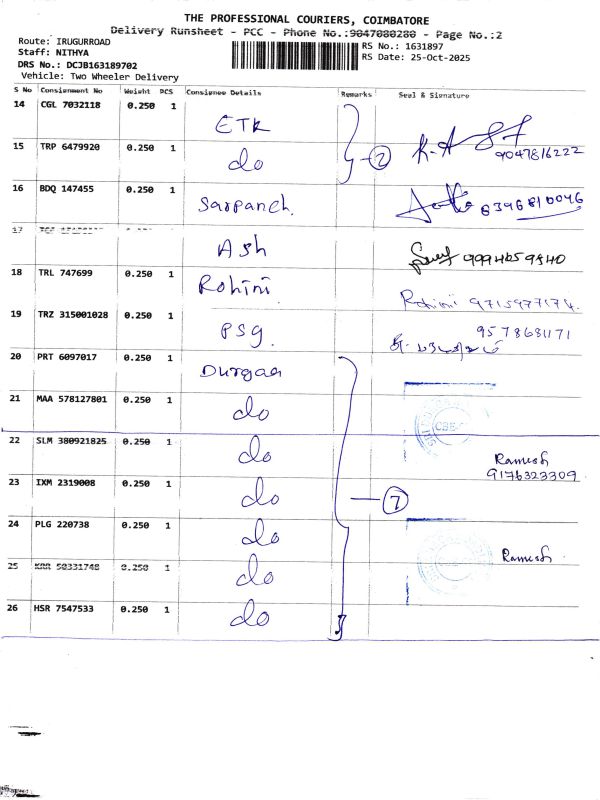 THE PROFESSIONAL COURIERS, COIMBATORE
Delivery Runsheet - PCC - Phone No.:9047080280 - Page No.:2
Route: IRUGURROAD
RS No.: 1631897
Staff: NITHYA
RS Date: 25-Oct-2025
DRS No.: DCJB163189702
Vehicle: Two Wheeler Delivery
S No Consignment No Weight PCS Consignee Details Remarks Seal & Signature
14 CGL 7032118 0.250 1 ETK
15 TRP 6479920 0.250 1 do 2 9047816222
16 BDQ 147455 0.250 1 Sarpanch. 8396810046
17 Ash 9994659540
18 TRL 747699 0.250 1 Rohini Rohini
19 TRZ 315001028 0.250 1 PSG 9578681171
20 PRT 6097017 0.250 1 Durgaa
21 MAA 578127801 0.250 1 do
22 SLM 380921825 0.250 1 do Ramesh
9176323309
23 IXM 2319008 0.250 1 do 7
24 PLG 220738 0.250 1 do Ramesh
25 KRR 50331748 0.250 1 do
26 HSR 7547533 0.250 1 do